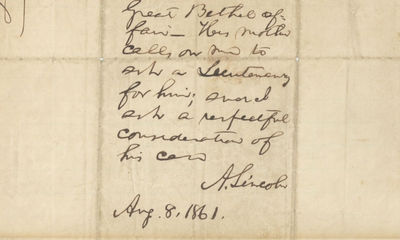 Great Bethel af-
fair— His mother
calls on me to
ask a Lieutenancy
for him; and I
ask a respectful
consideration of
his case
A. Lincoln
Aug. 8, 1861.